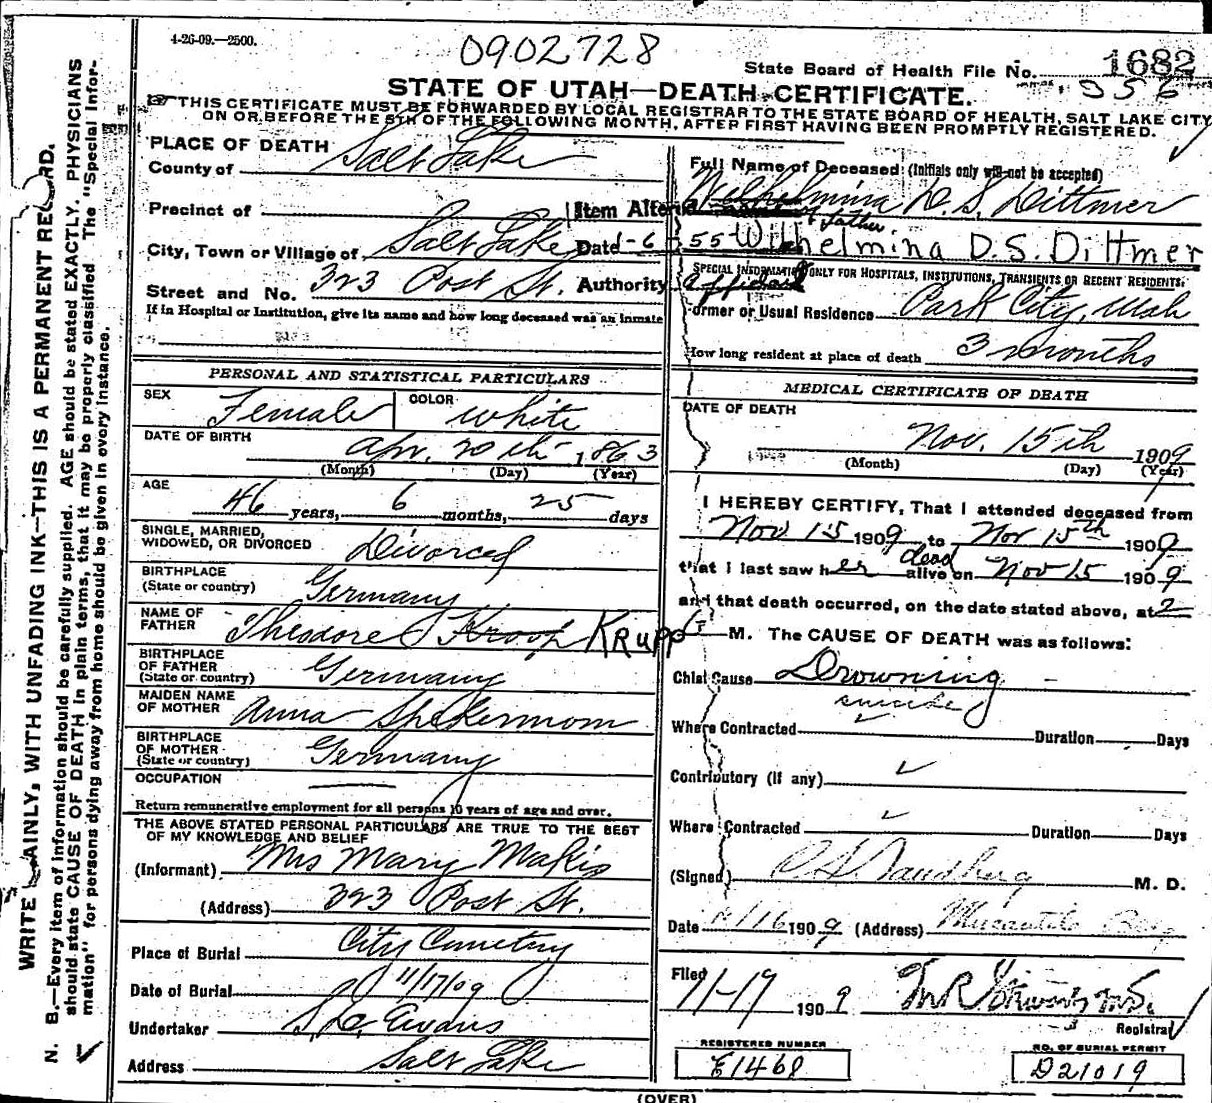 4-26-09.—2500.
0902728
State Board of Health File No. 1682
356
STATE OF UTAH—DEATH CERTIFICATE.
THIS CERTIFICATE MUST BE FORWARDED BY LOCAL REGISTRAR TO THE STATE BOARD OF HEALTH, SALT LAKE CITY,
ON OR BEFORE THE 5TH OF THE FOLLOWING MONTH, AFTER FIRST HAVING BEEN PROMPTLY REGISTERED.
PLACE OF DEATH
County of Salt Lake
Precinct of
City, Town or Village of Salt Lake
Street and No. 323 Post St.
If in Hospital or Institution, give its name and how long deceased was an inmate
Full Name of Deceased (Initials only will not be accepted)
Wilhelmina D. S. Dittmer
Item Altered
of father
Date 1-6-55 Wilhelmina D. S. Dittmer
Authority Affidavit
SPECIAL INFORMATION ONLY FOR HOSPITALS, INSTITUTIONS, TRANSIENTS OR RECENT RESIDENTS.
Former or Usual Residence Park City, Utah
How long resident at place of death 3 months
PERSONAL AND STATISTICAL PARTICULARS
SEX Female COLOR white
DATE OF BIRTH Apr. 20th, 1863
(Month) (Day) (Year)
AGE 46 years, 6 months, 25 days
SINGLE, MARRIED,
WIDOWED, OR DIVORCED Divorced
BIRTHPLACE
(State or country) Germany
NAME OF
FATHER Theodore Kroop KRUPP
BIRTHPLACE
OF FATHER
(State or country) Germany
MAIDEN NAME
OF MOTHER Anna Spekermom
BIRTHPLACE
OF MOTHER
(State or country) Germany
OCCUPATION
Return remunerative employment for all persons 10 years of age and over.
THE ABOVE STATED PERSONAL PARTICULARS ARE TRUE TO THE BEST
OF MY KNOWLEDGE AND BELIEF
(Informant) Mrs Mary Makis
(Address) 323 Post St.
Place of Burial City Cemetery
Date of Burial 11/17/09
Undertaker S. D. Evans
Address Salt Lake
MEDICAL CERTIFICATE OF DEATH
DATE OF DEATH
Nov. 15th 1909
(Month) (Day) (Year)
I HEREBY CERTIFY, That I attended deceased from
Nov 15 1909 to Nov 15th 1909
that I last saw her dead alive on Nov 15 1909
and that death occurred, on the date stated above, at 2
M. The CAUSE OF DEATH was as follows:
Chief Cause Drowning
suicide
Where Contracted Duration Days
Contributory (if any)
Where Contracted Duration Days
(Signed) Sandberg M. D.
Date 11/16 1909 (Address) Mercantile
Filed 11-19 1909
Registrar
REGISTERED NUMBER
E1468
NO. OF BURIAL PERMIT
D21019
(OVER)
WRITE PLAINLY, WITH UNFADING INK—THIS IS A PERMANENT RECORD.
N. B.—Every item of information should be carefully supplied. AGE should be stated EXACTLY. PHYSICIANS
should state CAUSE OF DEATH in plain terms, that it may be properly classified. The "Special Infor-
mation" for persons dying away from home should be given in every instance.